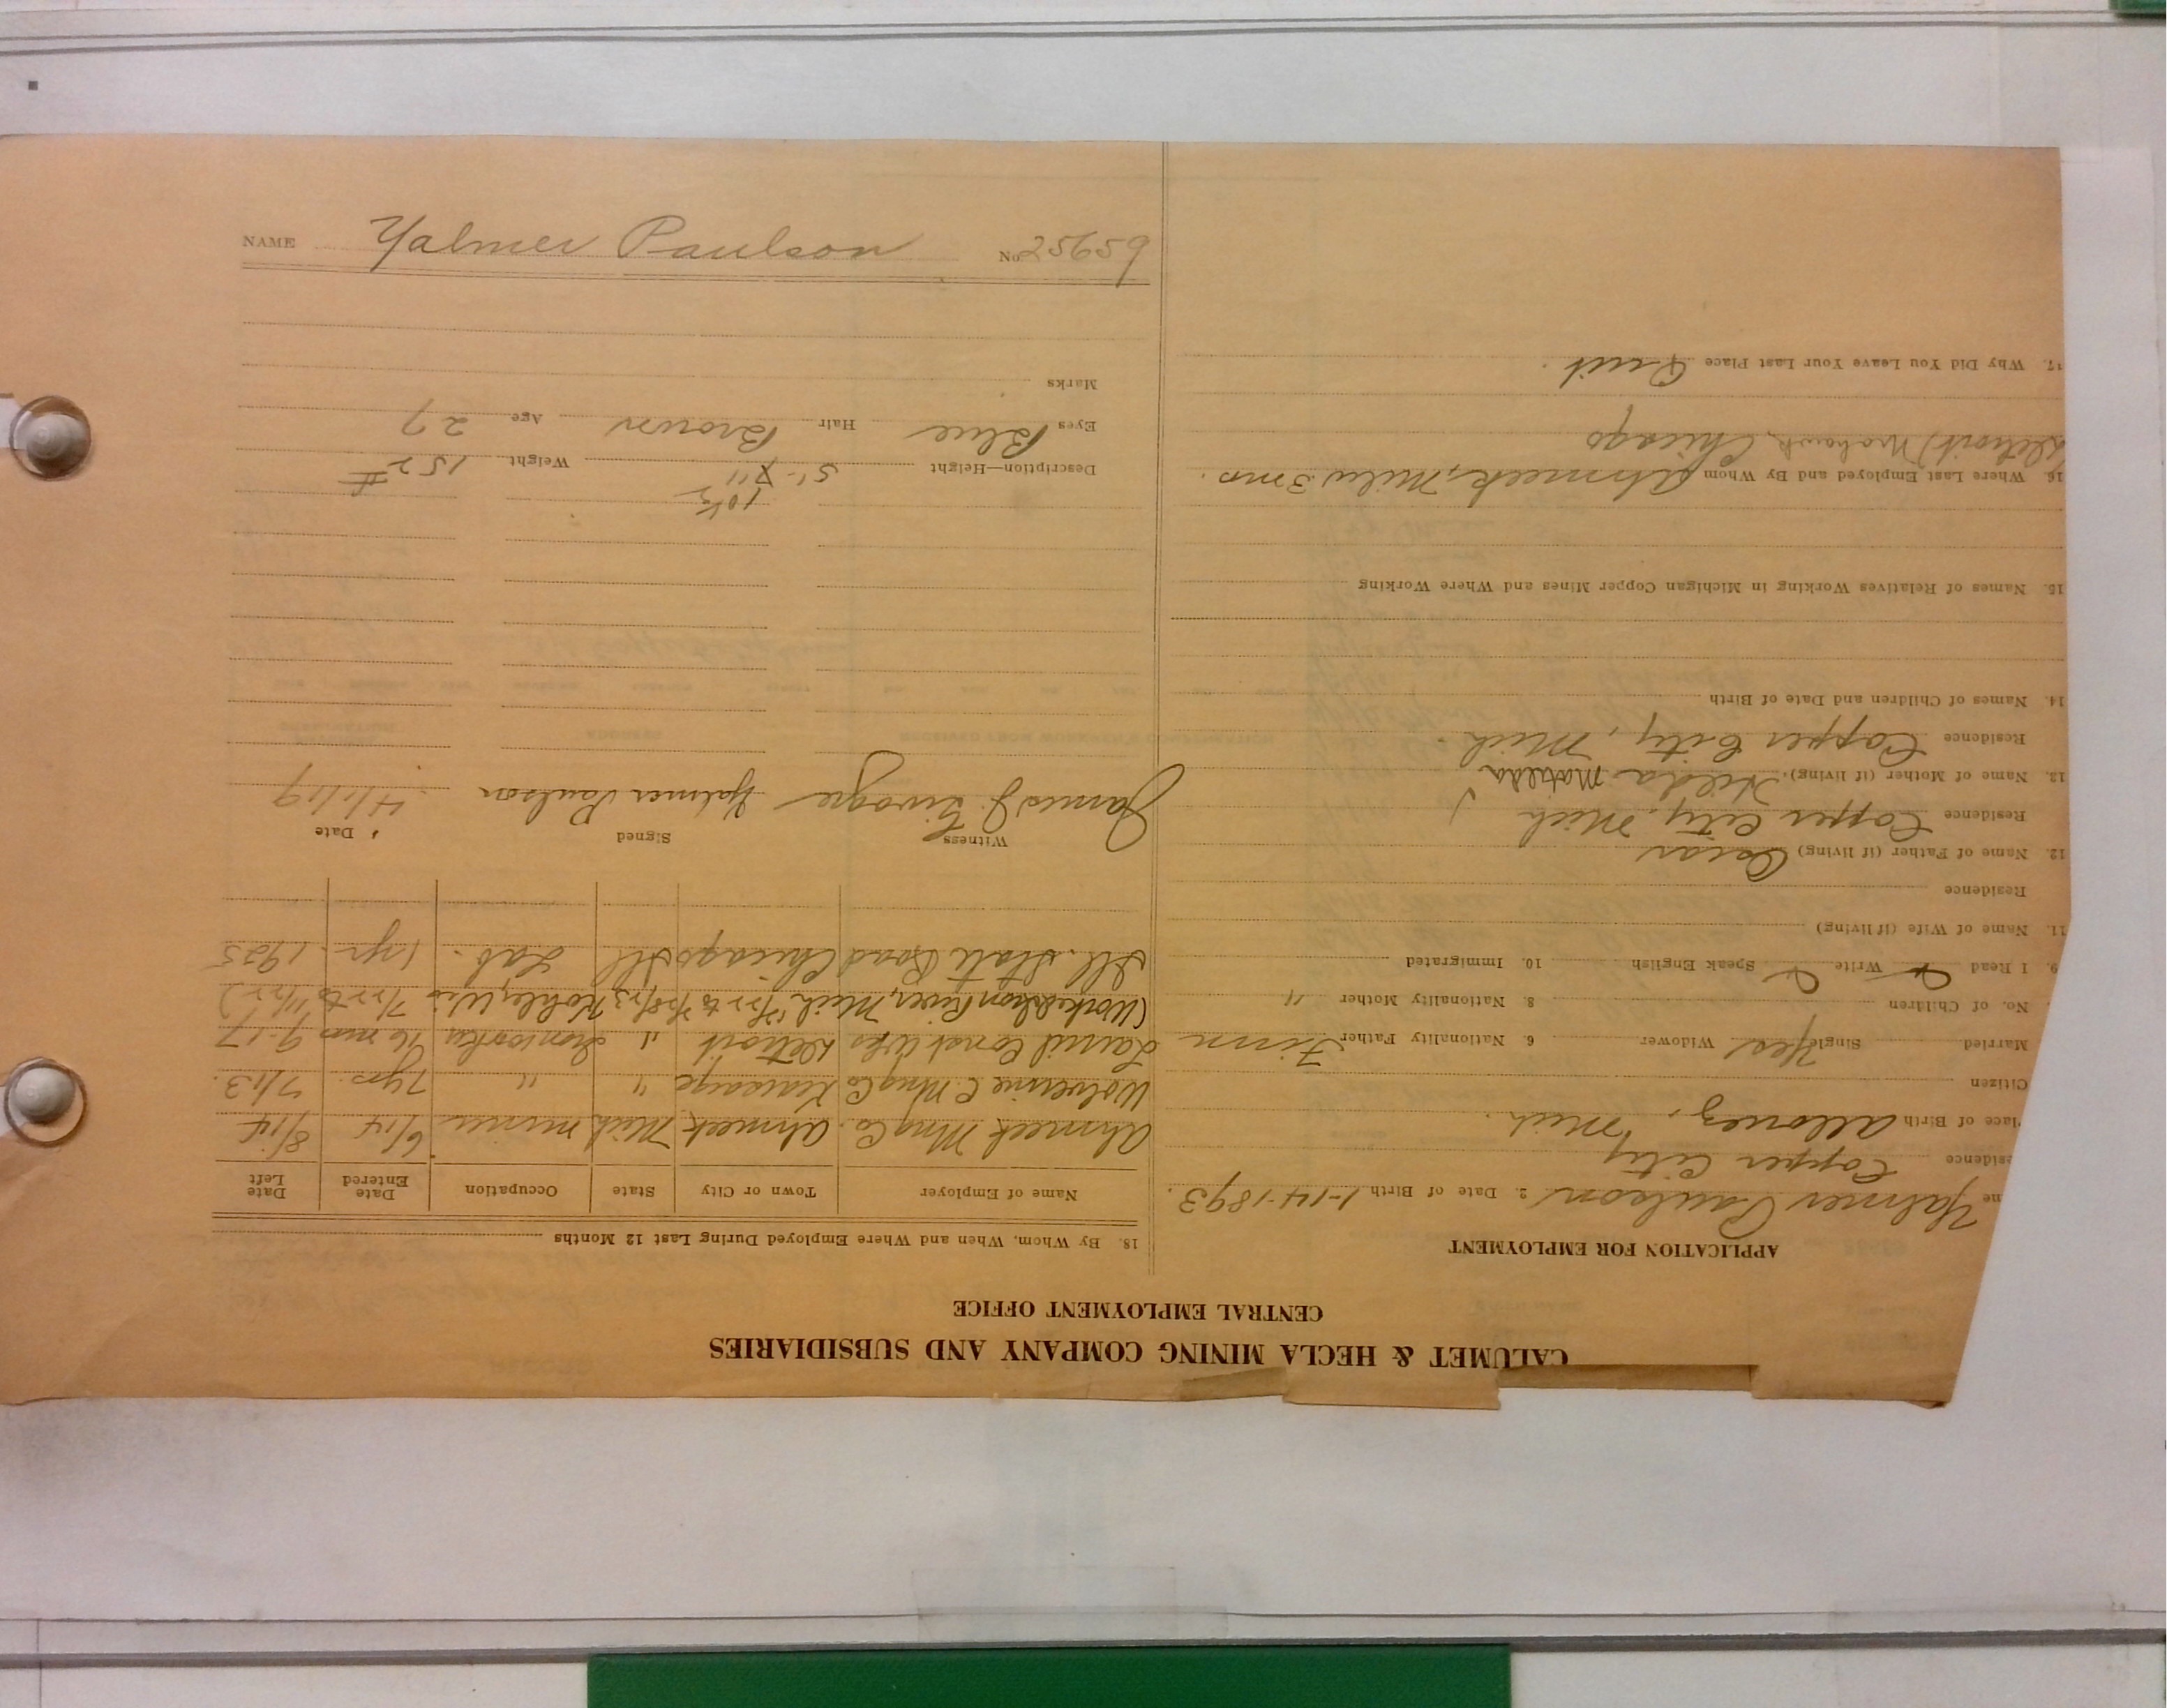 CALUMET & HECLA MINING COMPANY AND SUBSIDIARIES
CENTRAL EMPLOYMENT OFFICE
APPLICATION FOR EMPLOYMENT
me Yalmer Paulson 2. Date of Birth 1-14-1893.
esidence Copper City
lace of Birth Allouez, Mich.
Citizen
Married Single Yes Widower 6. Nationality Father Finn
No. of Children 8. Nationality Mother "
9. I Read Write Speak English 10. Immigrated
11. Name of Wife (if living)
Residence
12. Name of Father (if living) Oscar
Residence Copper City, Mich
13. Name of Mother (if living). Hilda Matilda
Residence Copper City, Mich.
14. Names of Children and Date of Birth
15. Names of Relatives Working in Michigan Copper Mines and Where Working
16. Where Last Employed and By Whom Ahmeek, Milw. 3 mo.
Detroit, Mohawk, Chicago
17. Why Did You Leave Your Last Place Quit.
18. By Whom, When and Where Employed During Last 12 Months
Name of Employer Town or City State Occupation Date Entered Date Left
Ahmeek Mng Co. Ahmeek Mich miner 6/14 8/14
Wolverine C Mng Co Kearsarge " " 7 yrs. 7/13.
Const Wks Detroit " Ironworker 16 mos 9-17
(Worked Iron River, Mich Kohler, Wis 7/22 to 11/22)
Ill. State Road Chicago Ill Lab. 1 yr. 1925
Witness Signed Date
James J. Yalmer Paulson 4/1/19
10½
Description—Height 5'-X11 Weight 152 #
Eyes Blue Hair Brown Age 27
Marks
NAME Yalmer Paulson No 25659